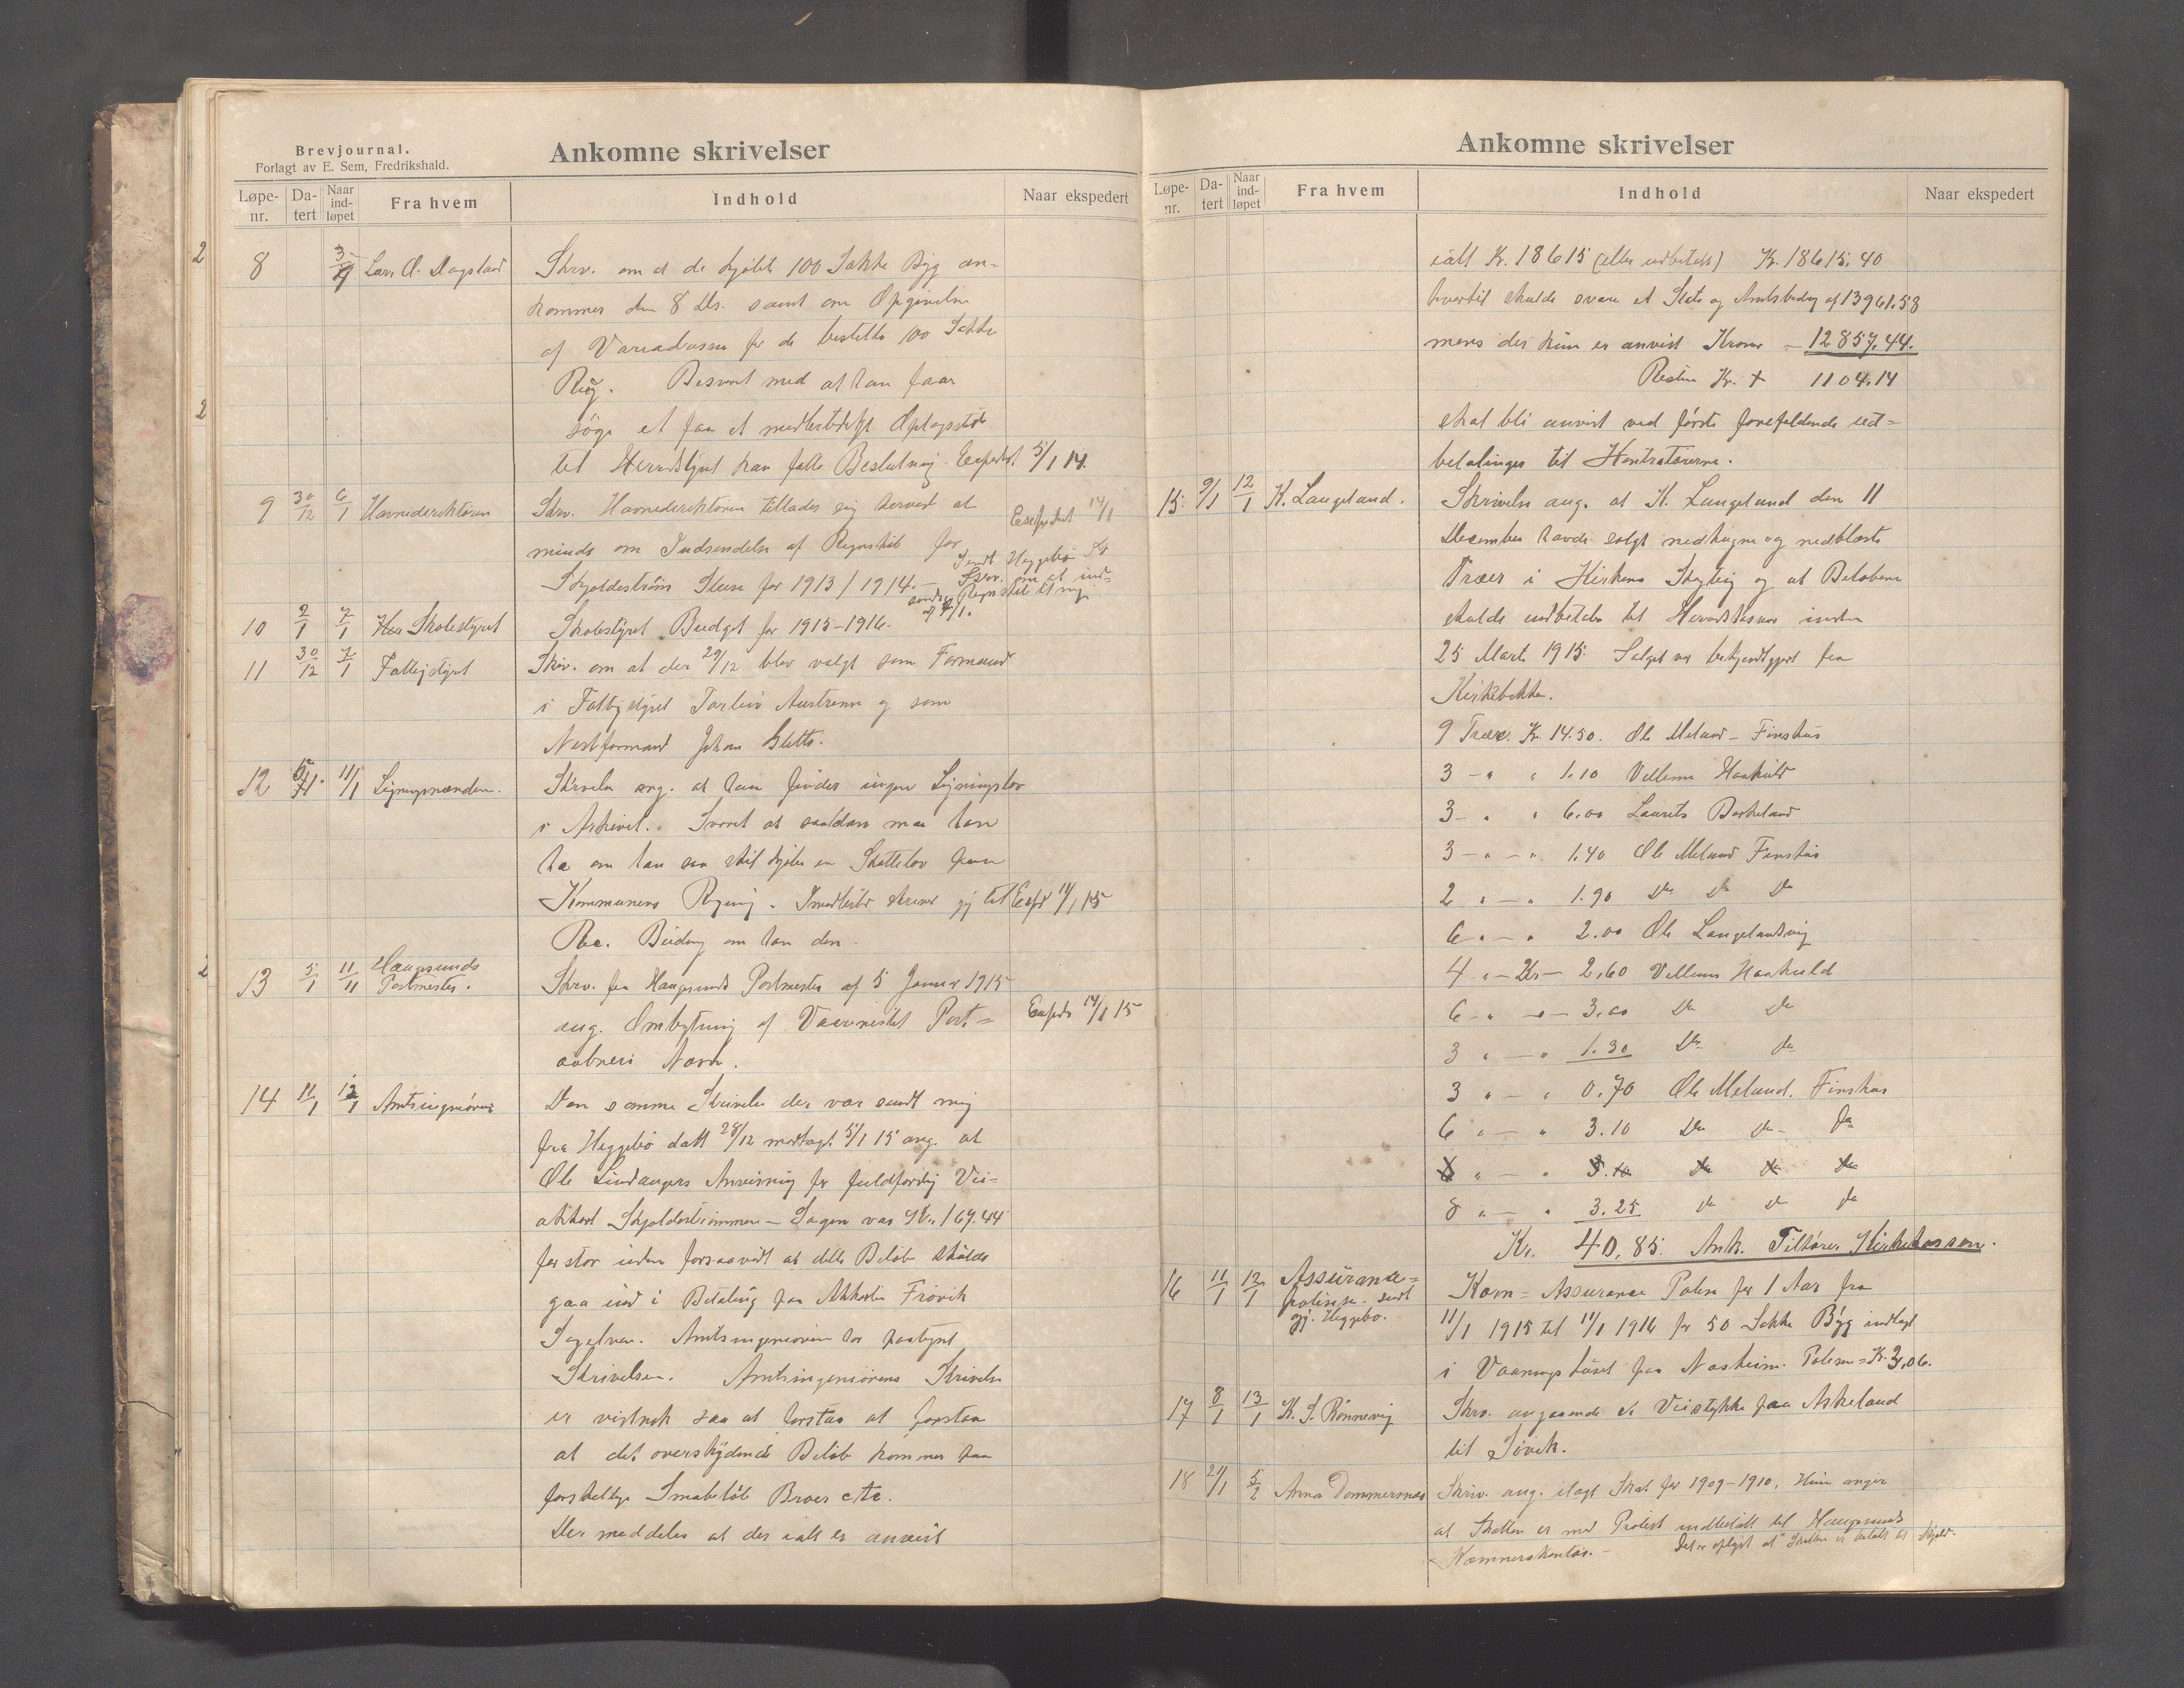 Brevjournal.
Forlagt av E. Sem, Fredrikshald.
Ankomne skrivelser
Løpe-nr. Da-tert Naar ind-løpet Fra hvem Indhold Naar ekspedert
8 3/1 Lars O. Dagsland Skrv. om at de kjøbte 100 Sække Byg an-
kommer den 8 ds. samt om Opgivelse
af for de bestelte 100 Sække
Rug. Besvart med at han faar
søge at faa et midlertidigt Oplagssted
til Herredstyret kan fatte Beslutning. Expedert 5/1 14.
9 30/12 6/1 Havnedirektøren Skrv. Havnedirektøren tillader sig herved at
minde om Indsendelse af Regnskab for Expedert 14/1
Skjoldestrøms Sluse for 1913/1914. — Sendt Heggebø
Skrv. om at ind-
sende Regnskab til mig
af 7/1.
10 2/1 7/1 Skolestyret Skolestyret Budget for 1915-1916.
11 30/12 7/1 Fattigstyret Skrv. om at der 29/12 blev valgt som Formand
i Fattigstyret Torleiv Austrem og som
Nestformand Johan Slette.
12 11/1 Ligningsnævnden. Skrivelse ang. at han finder ingen Ligningslov
i Arkivet. Svaret at saadan maa han
ha om han saa skil kjøbe en Skattelov paa
Kommunens Regning. Imidlertid skriver jeg til Exp 11/1 15
om han den.
13 5/1 11/1 Haugesunds
Postmester. Skrv. fra Haugesunds Postmester af 5 Januar 1915
ang. Ombytning af Post= Expedr 14/1 15
aabneri Navn.
14 11/1 12/1 Amtsingeniøren Den samme Skrivelse der var sendt mig
fra Heggebø datt 28/12 modtagt 5/1 15 ang. at
Ole Lindangers Anvisning for fuldfærdig Vei-
akkord Skjoldestrømmen — Sagen var Kr. 167.44
for stor uden forsaavidt at dette Beløb skulde
gaa ind i Betaling paa Akkorden Frøvik
Sagelven. Amtsingeniøren har paategnet
Skrivelsen. Amtsingeniørens Skrivelse
er vistnok saa at forstaa at forstaa
at det overskydende Beløb kommer paa
forskellige Smabeløb Broer etc.
Der meddeles at der ialt er anvist
Ankomne skrivelser
Løpe-nr. Da-tert Naar ind-løpet Fra hvem Indhold Naar ekspedert
ialt Kr. 18615 (eller udbetalt) Kr. 18615.40
hvortil skulde svare et Stats og Amtsbidrag af 13961.58
mens der kun er anvist Kroner - 12857.44.
Resten Kr. + 1104.14
skal bli anvist ved første forefaldende ud=
betalinger til Kontratørerne.
15. 9/1 12/1 K. Langeland. Skrivelse ang. at K. Langeland den 11
December havde solgt nedhugne og nedblæste
Træer i Kirkens Skogteig og at Beløbene
skulde indbetales til Herredskassen inden
25 Marts 1915. Salget var bekjendtgjort fra
Kirkebakken.
9 Træer Kr. 14.50. Ole Meland - Finshus
3 - " " 1.10 Vellum Haakuld
3 - " " 6.00 Laurits Barkeland
3 - " - " 1.40 Ole Meland Finshus
2 " - " 1.90 Do Do Do
6 " - " 2.00 Ole Langelandsvig
4 " - Kr - 2.60 Vellum Haakuld
6 - " - " - 3.00 Do Do
3 " - " 1.30 Do Do
3 " - " 0.70 Ole Meland. Finshus
6 " - " 3.10 Do Do Do
8 " - " 3.10 Do Do Do
8 " - " 3.25 Do Do Do
Kr. 40,85. Ank. Tilhører Kirkekassen.
16 11/1 12/1 Assurance=
polisse. sendt
gj. Heggebø. Korn = Assurance Polise for 1 Aar fra
11/1 1915 til 11/1 1916 for 50 Sække Byg indlagt
i Vaaningshuset paa Nasheim. Polisen = Kr. 3,06.
17 8/1 13/1 K. S. Rønnevig Skrv. angaaende et Veistykke fra Askeland
til Søvik.
18 29/1 5/2 Anna Dommersnes Skriv. ang. ilagt Skat for 1909-1910. Hun angir
at Skatten er med Protest indbetalt til Haugesunds
Kæmnerkontor. — Det er oplyst at Skatten er betalt til Skjold.